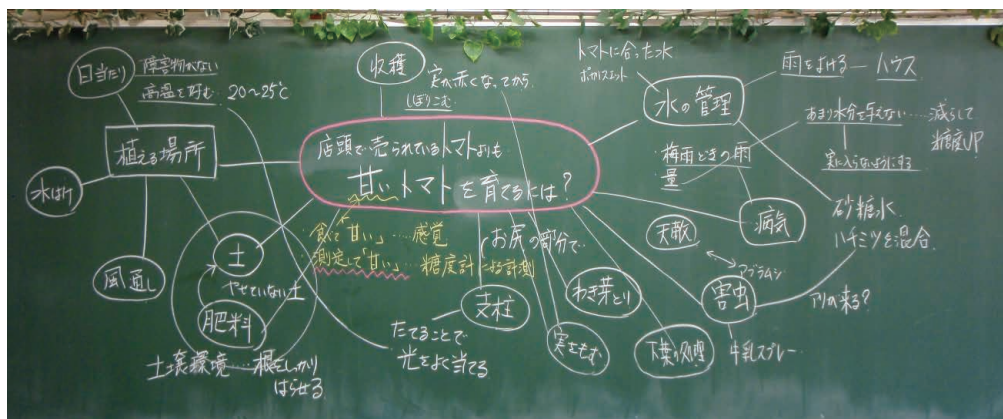 日当たり
障害物がない
高温を好む 20〜25℃
植える場所
水はけ
風通し
土
やせていない土
肥料
土壌環境…根をしっかり
はらせる
収穫
実が赤くなってから
しぼりこむ
店頭で売られているトマトよりも
甘いトマトを育てるには?
食べて「甘い」……感覚
測定して「甘い」…糖度計による計測
お尻の部分で
支柱
たてることで
光をよく当てる
実をもぐ
わき葉とり
下葉の処理
トマトに合った水
ポカリスエット
水の管理
雨をよける — ハウス
あまり水分を与えない……減らして
糖度UP
実に入らないようにする
梅雨どきの雨
量
病気
砂糖水
ハチミツを混合
天敵
アブラムシ
害虫
アリが来る?
牛乳スプレー